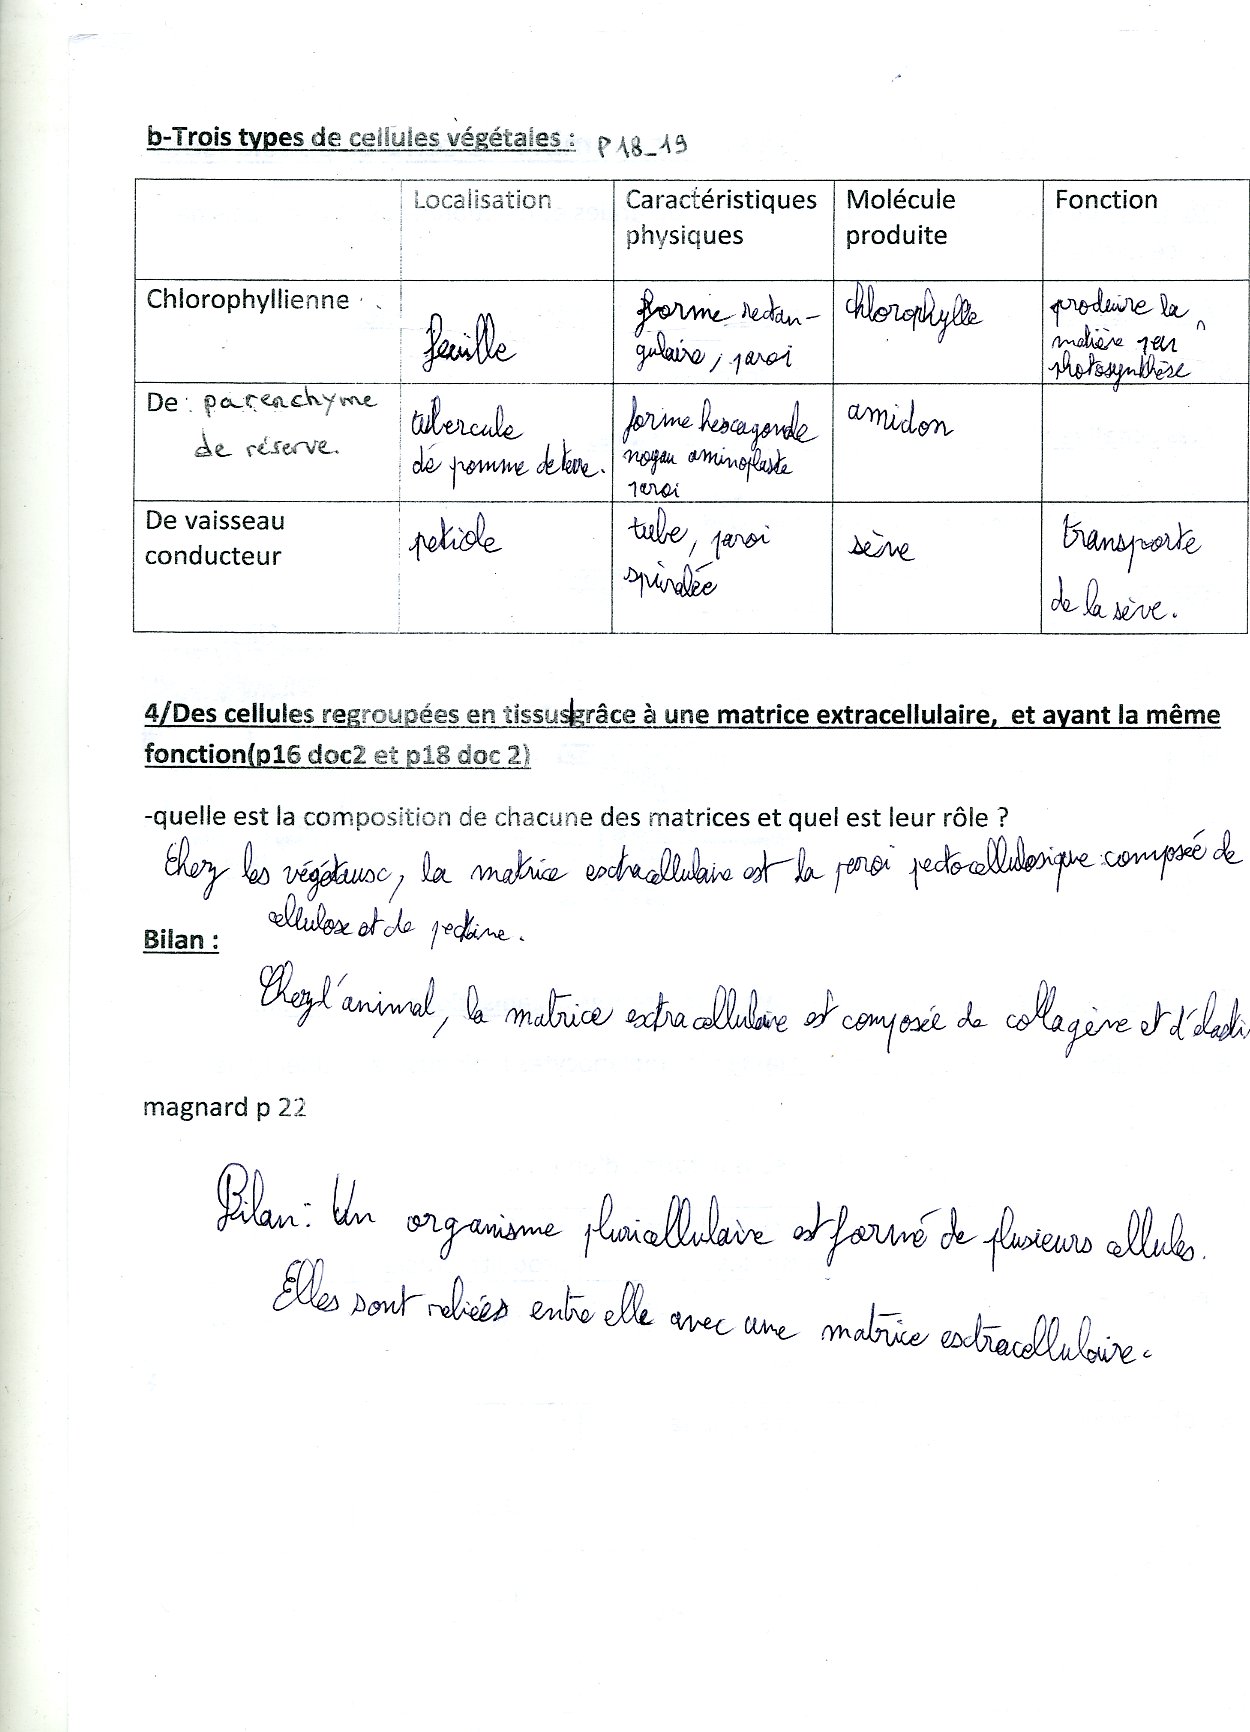 b-Trois types de cellules végétales : P 18_19
Localisation
Caractéristiques
physiques
Molécule
produite
Fonction
Chlorophyllienne
feuille
forme rectan-
gulaire, paroi
chlorophylle
produire la
matière par
photosynthèse
De parenchyme
de réserve.
tubercule
de pomme de terre.
forme hexagonale
noyau aminoplaste
paroi
amidon
De vaisseau
conducteur
petiole
tube, paroi
spiralée
sève
transporte
de la sève.
4/Des cellules regroupées en tissus grâce à une matrice extracellulaire, et ayant la même
fonction(p16 doc2 et p18 doc 2)
-quelle est la composition de chacune des matrices et quel est leur rôle ?
Chez les végétaux, la matrice extracellulaire est la paroi pectocellulosique composée de
cellulose et de pectine.
Bilan :
Chez l'animal, la matrice extracellulaire est composée de collagène et d'elasti
magnard p 22
Bilan : Un organisme pluricellulaire est formé de plusieurs cellules.
Elles sont reliées entre elle avec une matrice extracellulaire.